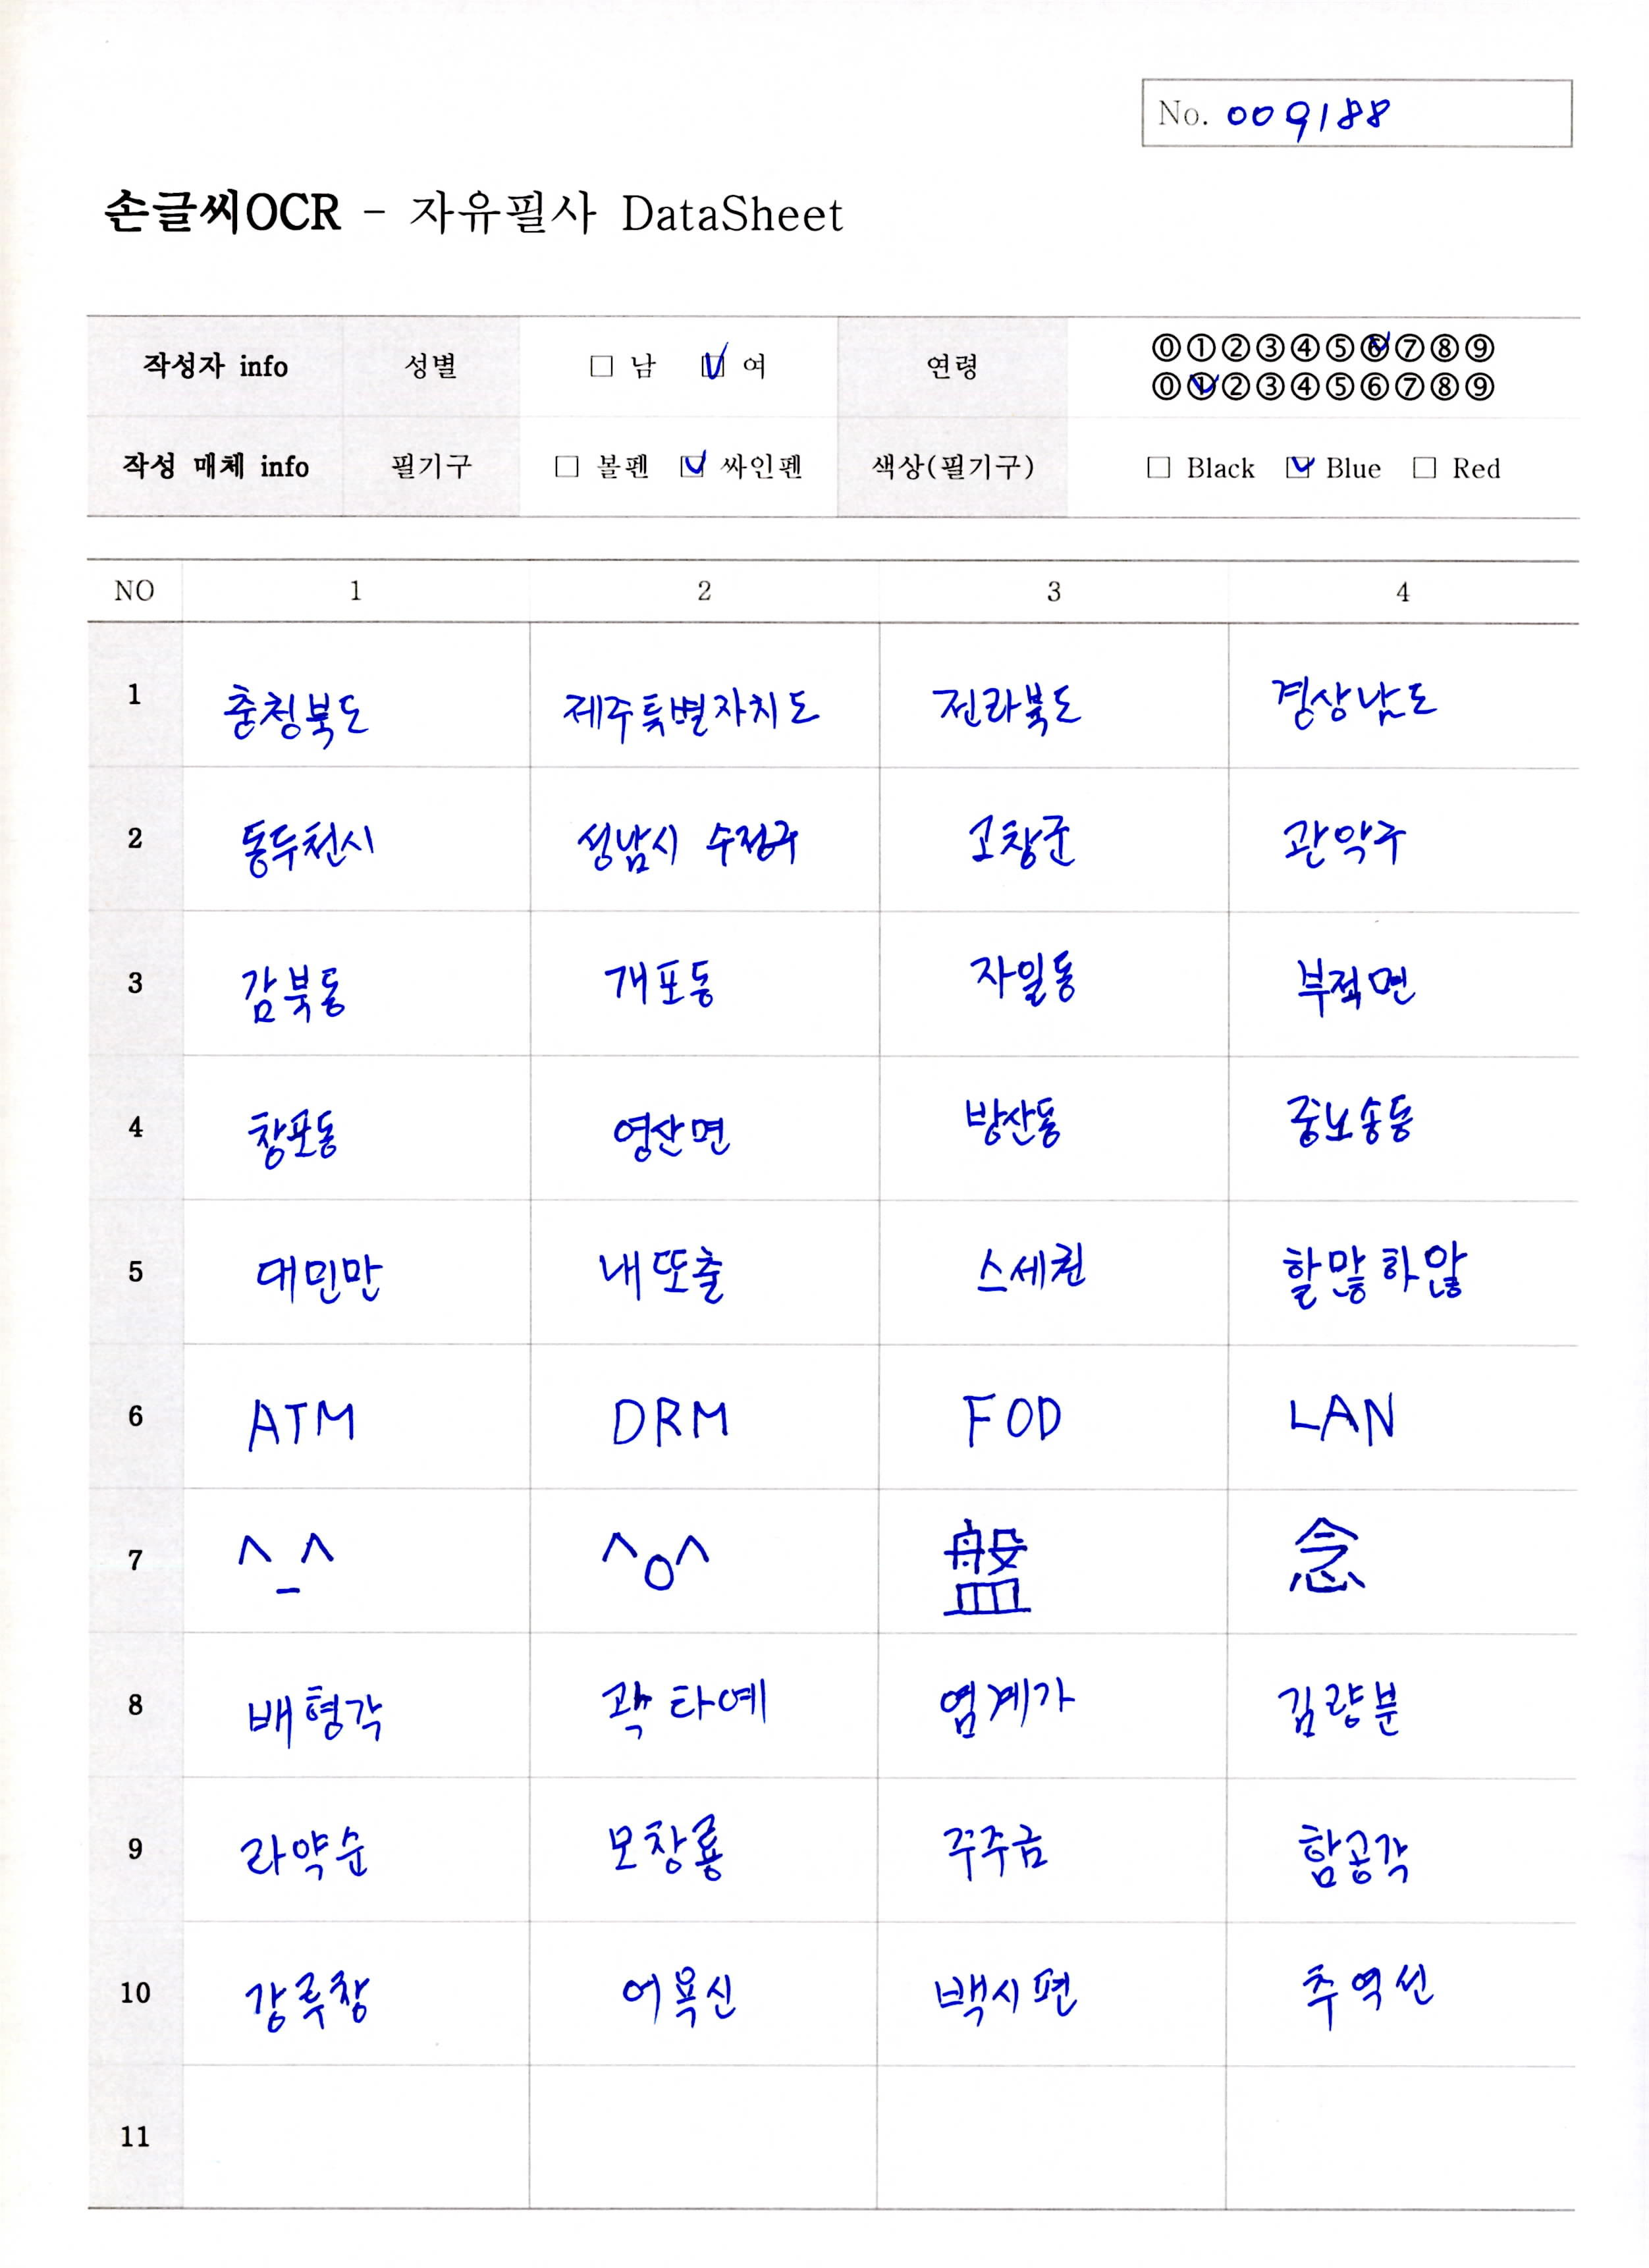 No. 009188
손글씨OCR - 자유필사 DataSheet
작성자 info 성별 □ 남 ☑ 여 연령 ⓪①②③④⑤⑥⑦⑧⑨
⓪①②③④⑤⑥⑦⑧⑨
작성 매체 info 필기구 □ 볼펜 ☑ 싸인펜 색상(필기구) □ Black ☑ Blue □ Red
NO 1 2 3 4
1 충청북도 제주특별자치도 전라북도 경상남도
2 동두천시 성남시 수정구 고창군 관악구
3 감북동 개포동 자일동 부적면
4 창포동 영산면 방산동 중노송동
5 대민만 내또출 스세권 할많하않
6 ATM DRM FOD LAN
7 ^_^ ^o^ 盤 念
8 배형각 곽타예 염계가 김량분
9 라약순 모창룡 꾸주금 함공각
10 강루창 어욕신 백시편 추역선
11